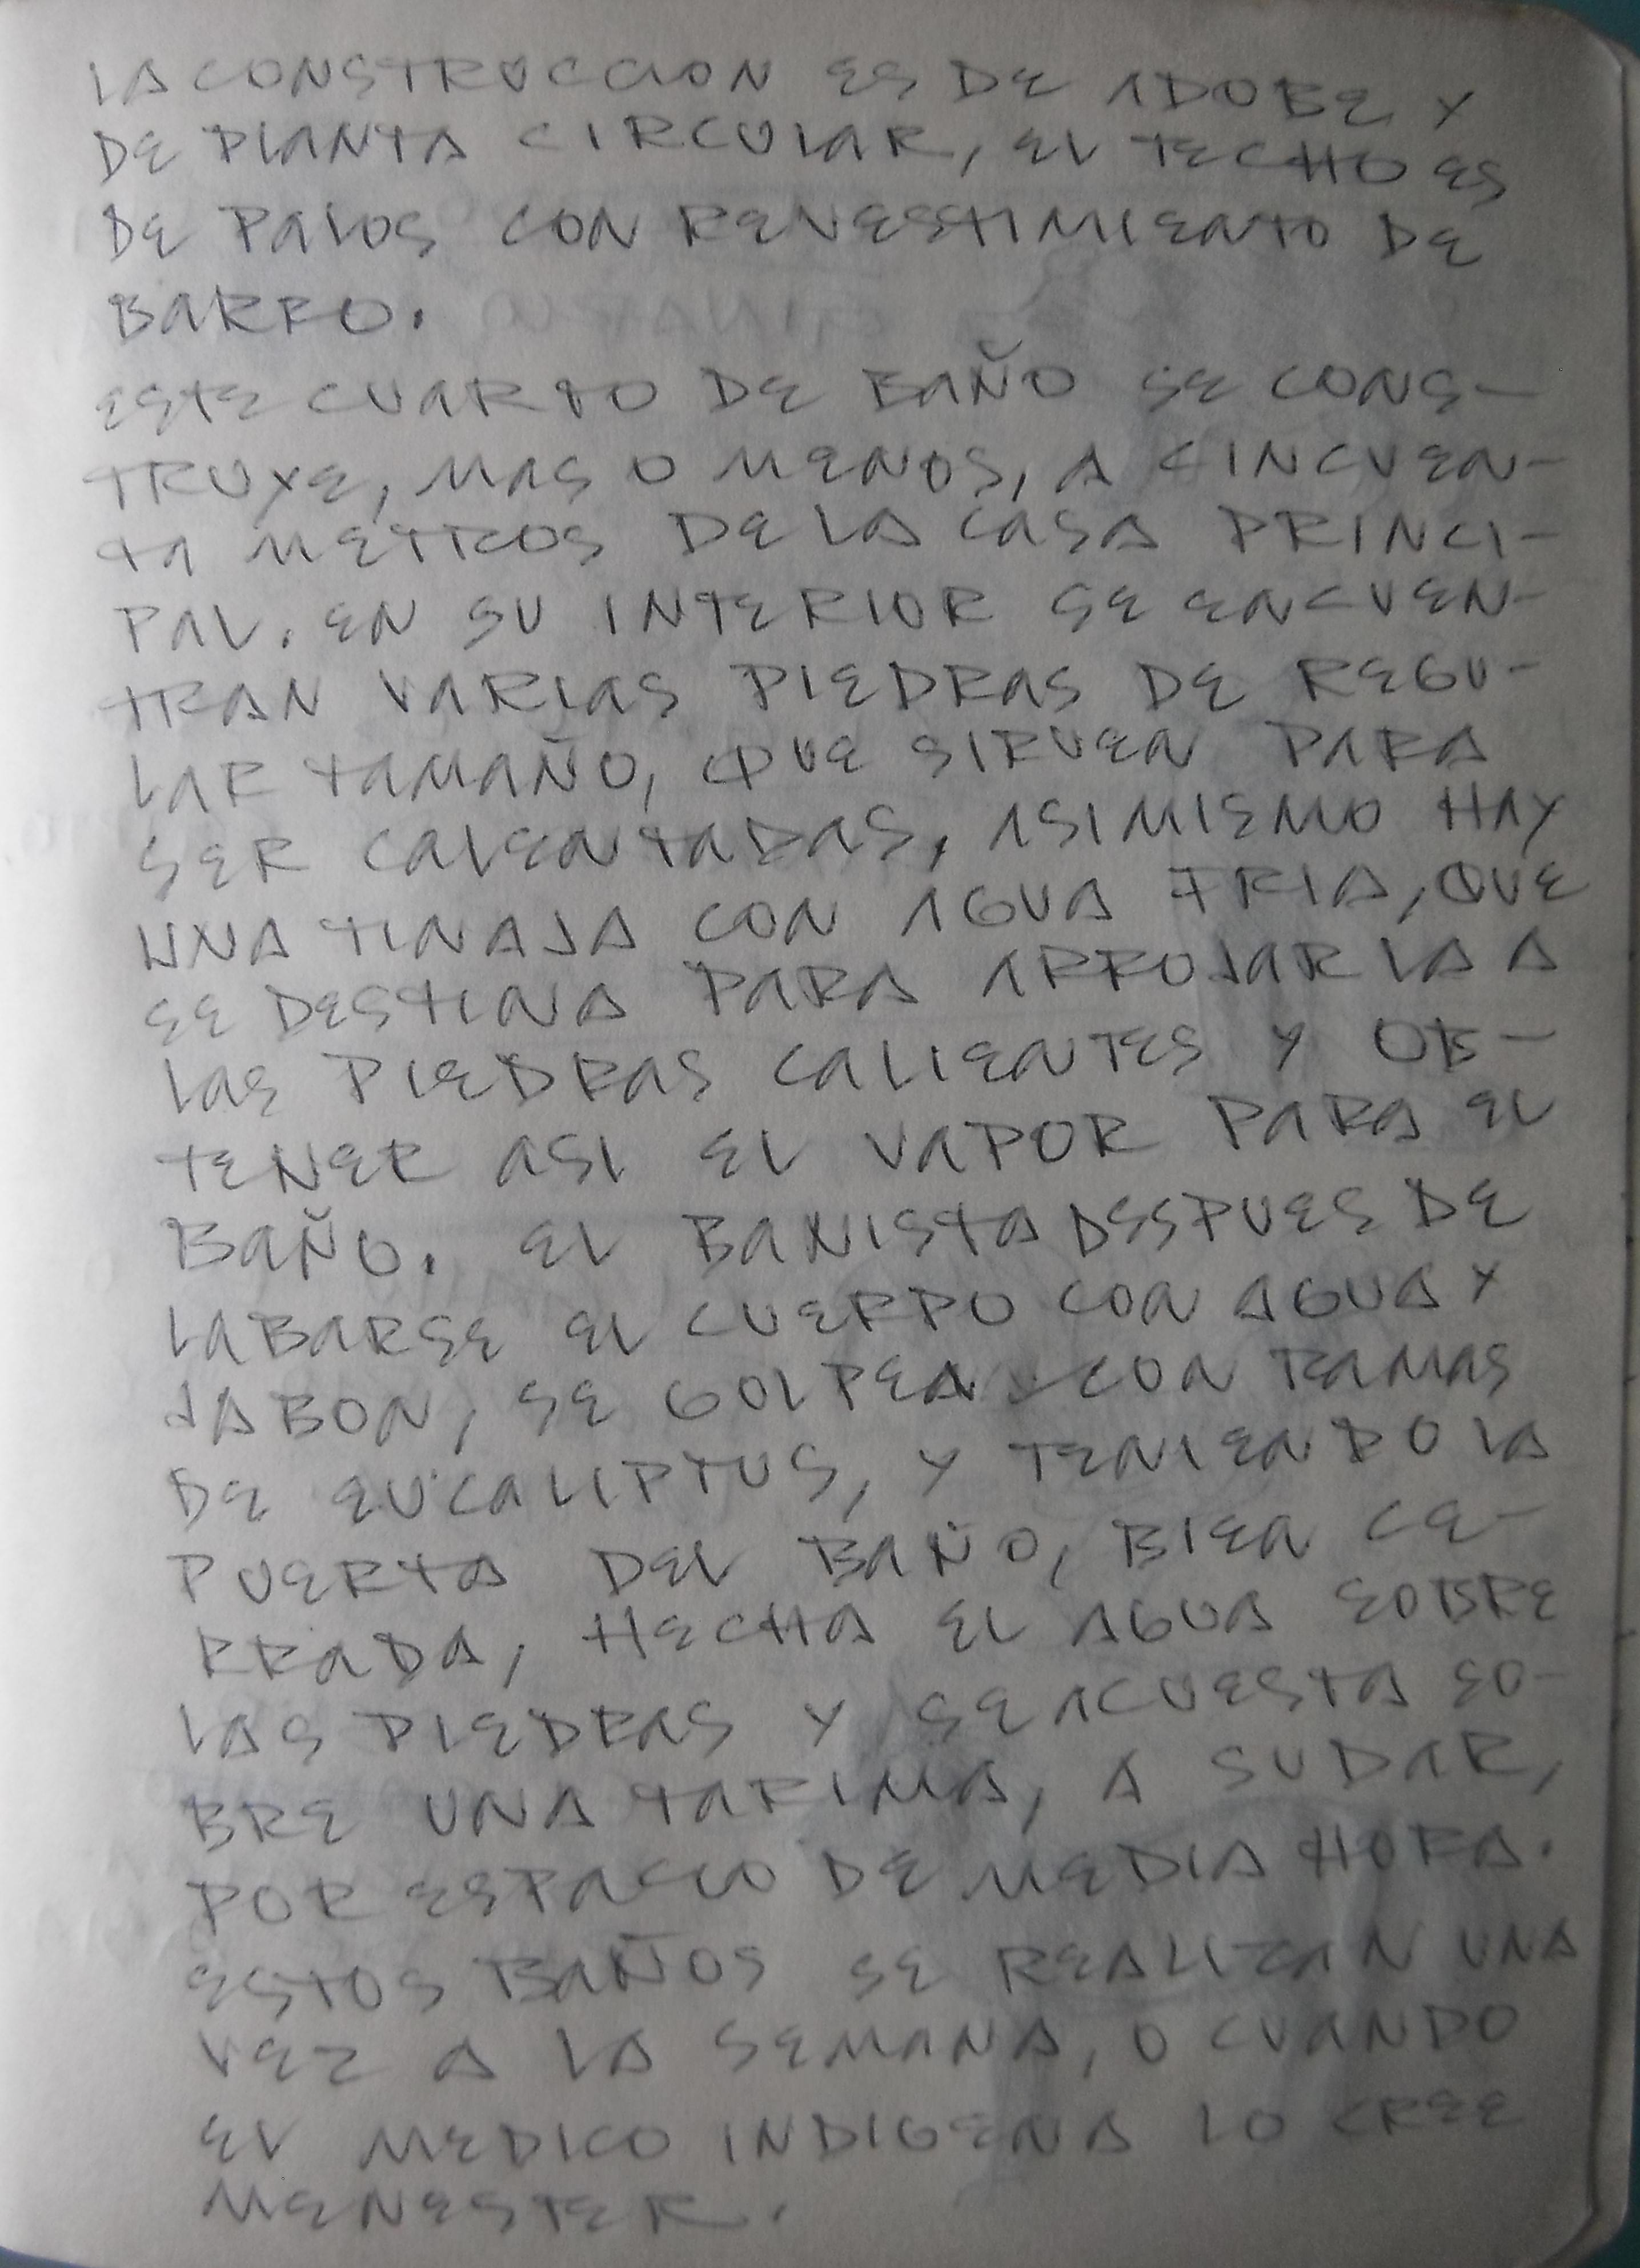 LA CONSTRUCCION ES DE ADOBE Y
DE PLANTA CIRCULAR, EL TECHO ES
DE PALOS CON REVESTIMIENTO DE
BARRO.
ESTE CUARTO DE BAÑO SE CONS-
TRUYE, MAS O MENOS, A CINCUEN-
TA METROS DE LA CASA PRINCI-
PAL. EN SU INTERIOR SE ENCUEN-
TRAN VARIAS PIEDRAS DE REGU-
LAR TAMAÑO, QUE SIRVEN PARA
SER CALENTADAS, ASIMISMO HAY
UNA TINAJA CON AGUA FRIA, QUE
SE DESTINA PARA ARROJARLA A
LAS PIEDRAS CALIENTES Y OB-
TENER ASI EL VAPOR PARA EL
BAÑO. EL BANISTA DSSPUES DE
LABARSE EL CUERPO CON AGUA Y
JABON, SE GOLPEA CON RAMAS
DE EUCALIPTUS, Y TENIENDO LA
PUERTA DEL BAÑO, BIEN CE-
RRADA, HECHA EL AGUA SOBRE
LAS PIEDRAS Y SE ACUESTA SO-
BRE UNA TARIMA, A SUDAR,
POR ESPACIO DE MEDIA HORA.
ESTOS BAÑOS SE REALIZAN UNA
VEZ A LA SEMANA, O CUANDO
EL MEDICO INDIGENA LO CREE
MENESTER.